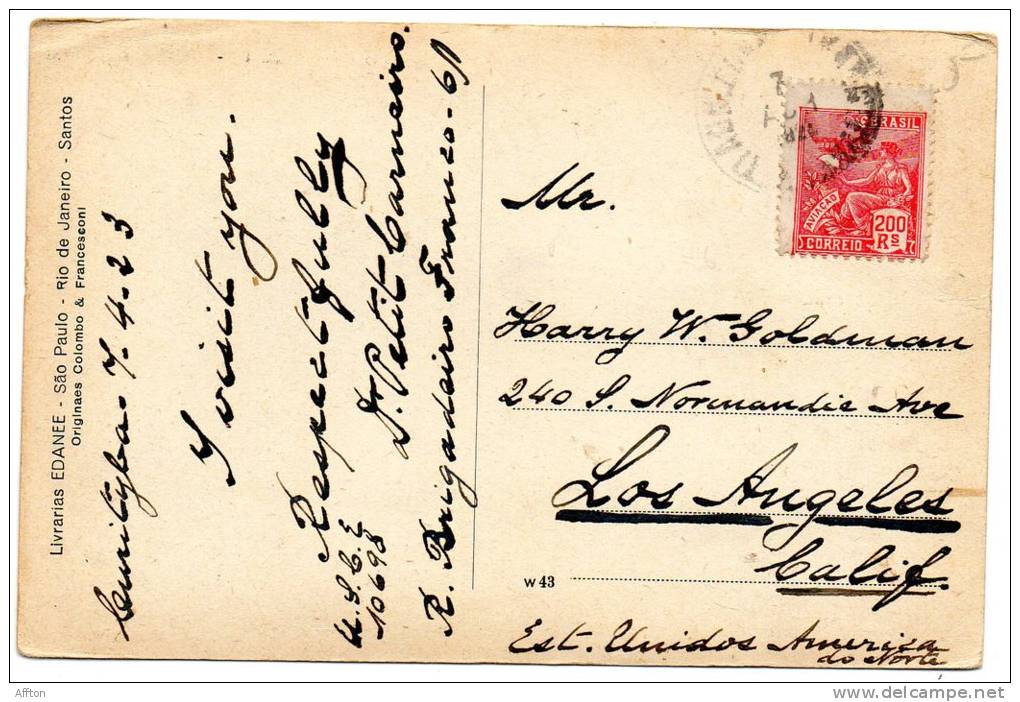 Livrarias EDANEE - São Paulo - Rio de Janeiro - Santos
Originaes Colombo & Francesconi
Curityba - 7-4-23
I visit you.
Respectfully
Dr Petit Carneiro.
U.S.C.E
10698
R. Brigadeiro Franco-61
BRASIL
AVIAÇÃO
200
Rs
CORREIO
Mr.
Harry W. Goldman
240 S. Normandie Ave
Los Angeles
Calif.
W 43
Est. Unidos America
do Norte
Afton
delcampe.net